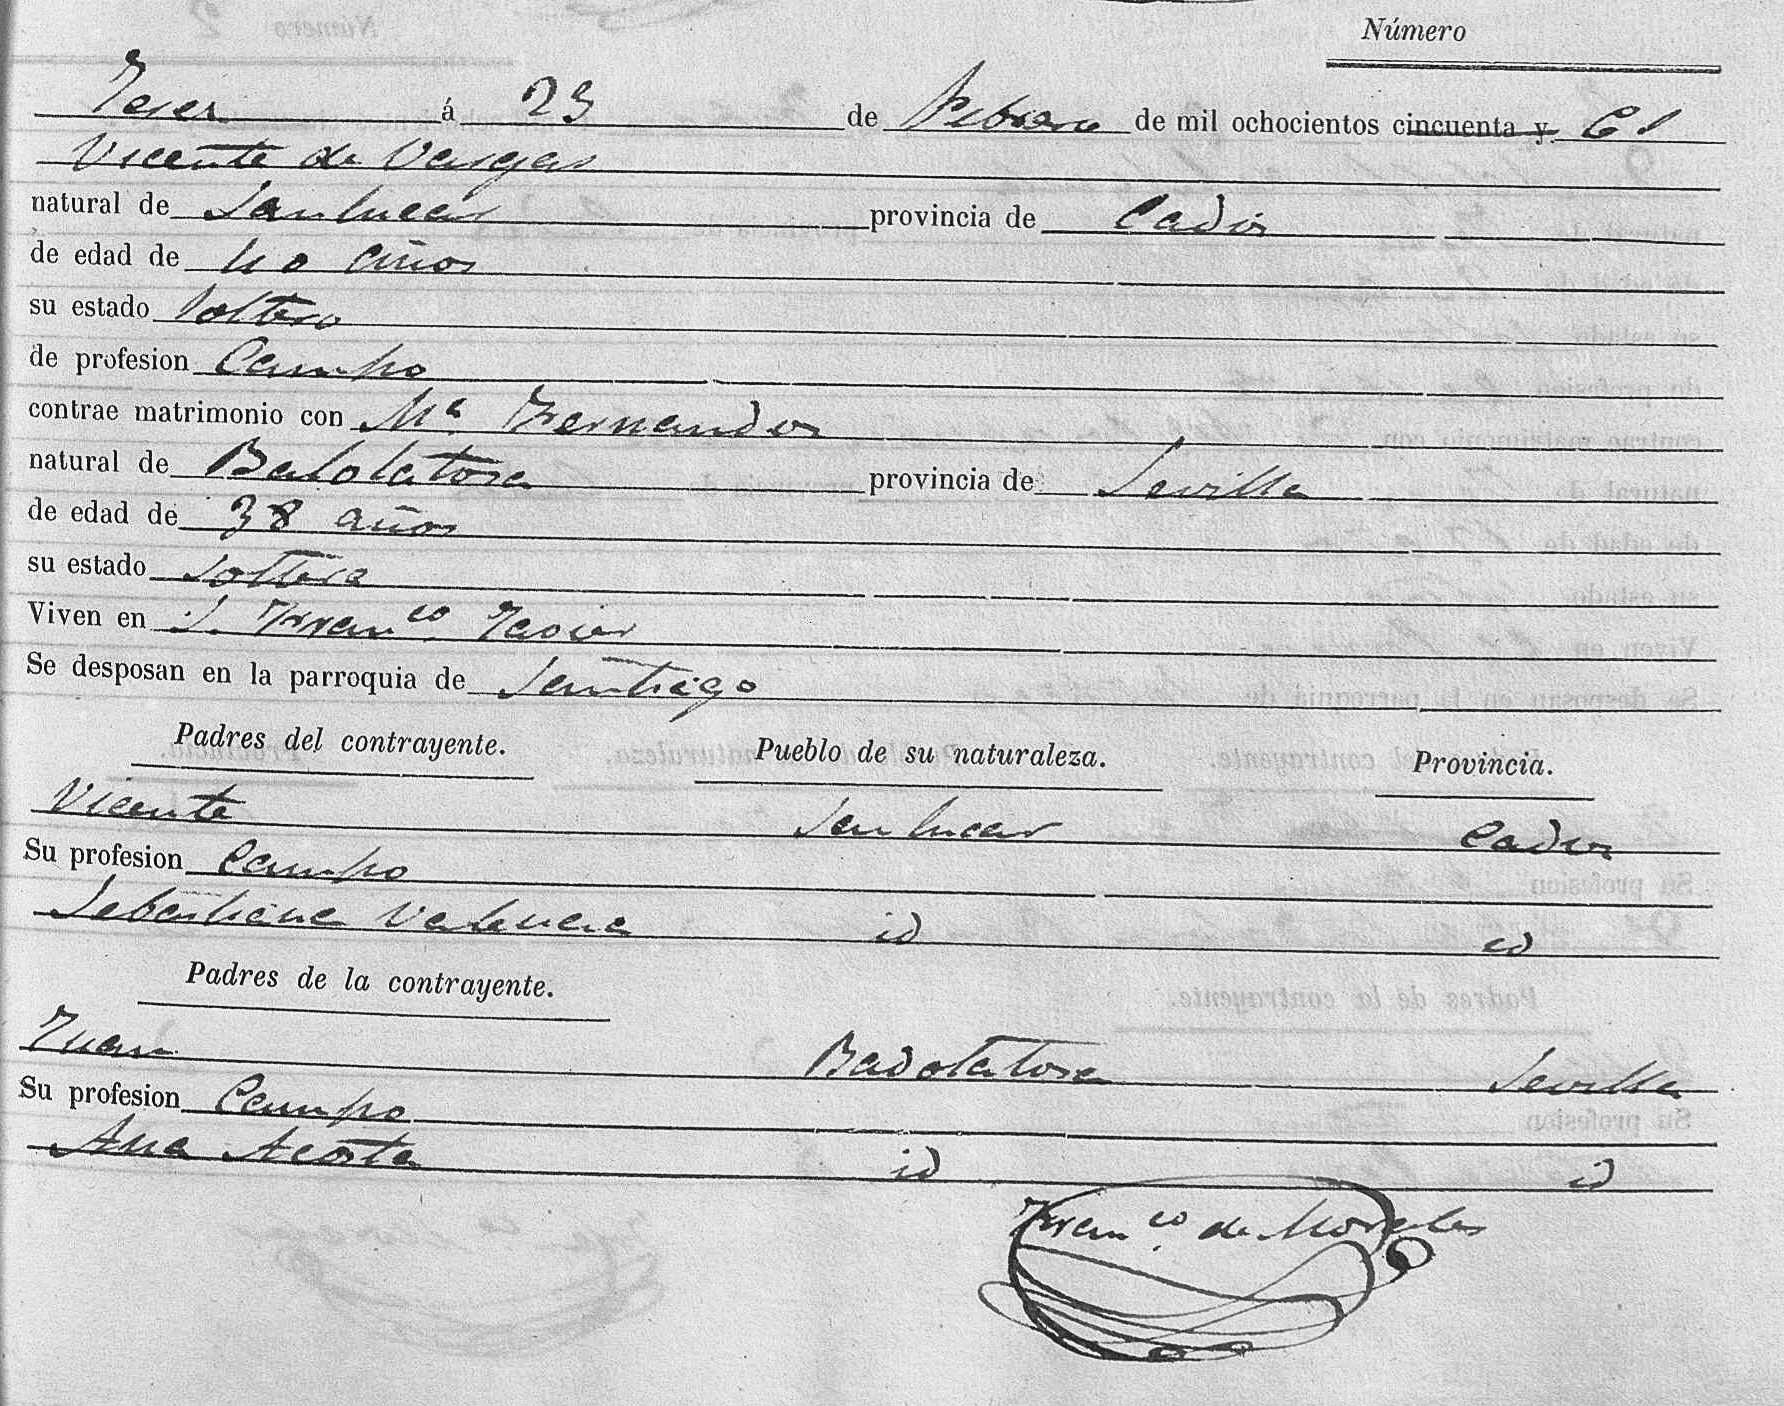 Número
Jerez á 23 de Febrero de mil ochocientos cincuenta y 61
Vicente de Vargas
natural de Sanlucar provincia de Cadiz
de edad de 40 años
su estado Soltero
de profesion Campo
contrae matrimonio con Mª Fernandez
natural de Badolatosa provincia de Sevilla
de edad de 38 años
su estado Soltera
Viven en S. Franco. Javier
Se desposan en la parroquia de Santiago
Padres del contrayente. Pueblo de su naturaleza. Provincia.
Vicente Sanlucar Cadiz
Su profesion Campo
Sebastiana Valencia id id
Padres de la contrayente.
Juan Badolatosa Sevilla
Su profesion Campo
Ana Acosta id id
Franco. de Morales